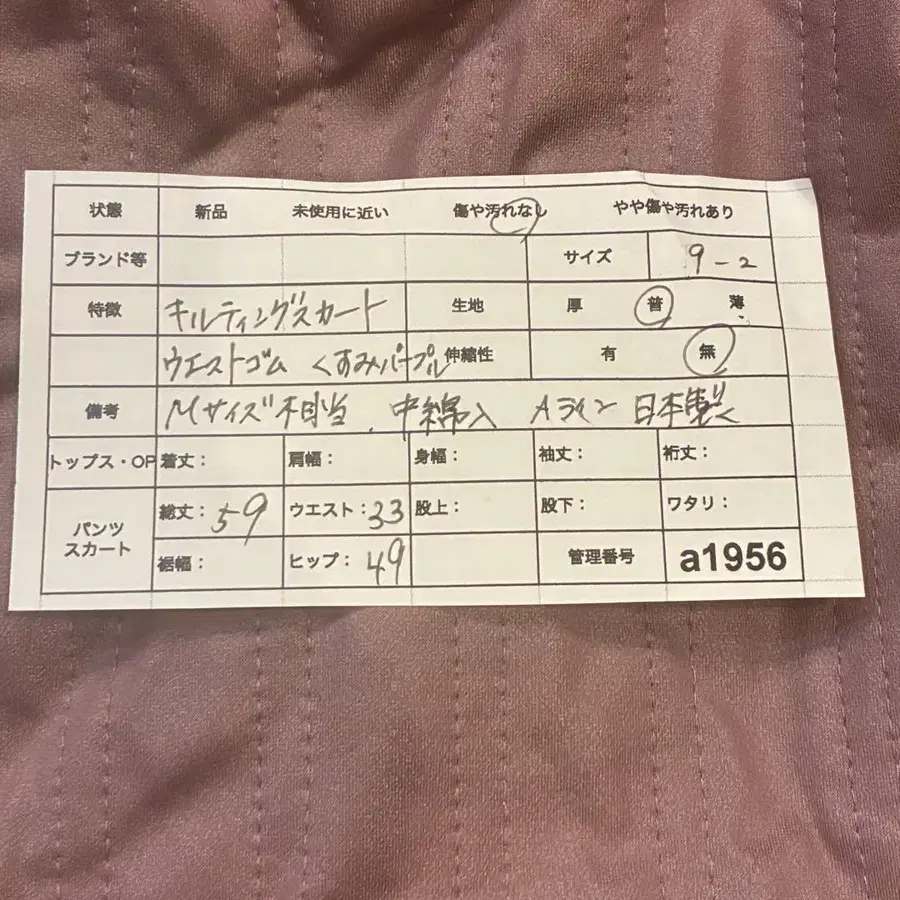 状態 新品 未使用に近い 傷や汚れなし やや傷や汚れあり
ブランド等 サイズ 9-2
特徴 キルティングスカート 生地 厚 普 薄
ウエストゴム くすみパープル 伸縮性 有 無
備考 Mサイズ相当、中綿入 Aライン 日本製
トップス・OP 着丈: 肩幅: 身幅: 袖丈: 裄丈:
パンツ スカート 総丈: 59 ウエスト: 33 股上: 股下: ワタリ:
裾幅: ヒップ: 49 管理番号 a1956